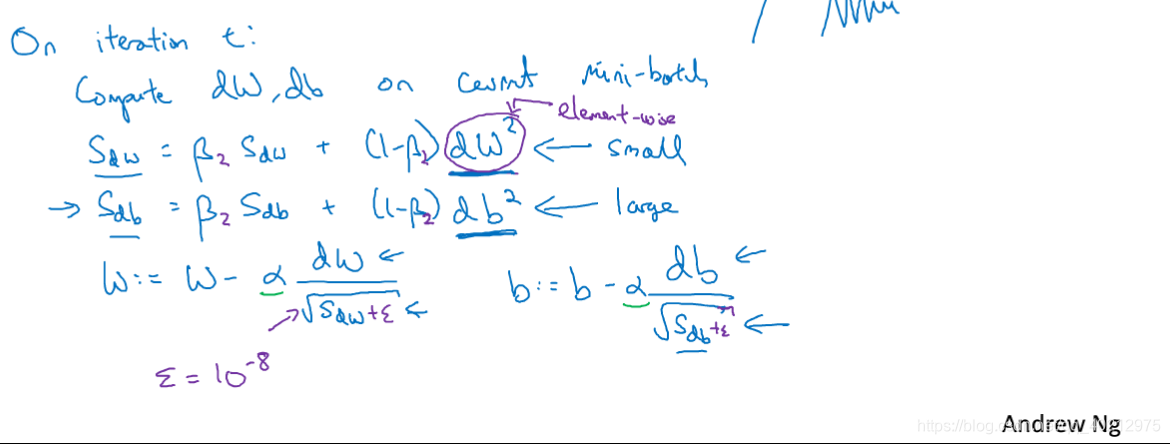 On iteration t:
Compute dW, db on current mini-batch
element-wise
S_dw = β₂ S_dw + (1-β₂) dW² ← small
→ S_db = β₂ S_db + (1-β₂) db² ← large
W := W - α dW / √(S_dw+ε) ← b := b - α db / √(S_db+ε) ←
ε = 10⁻⁸
Andrew Ng